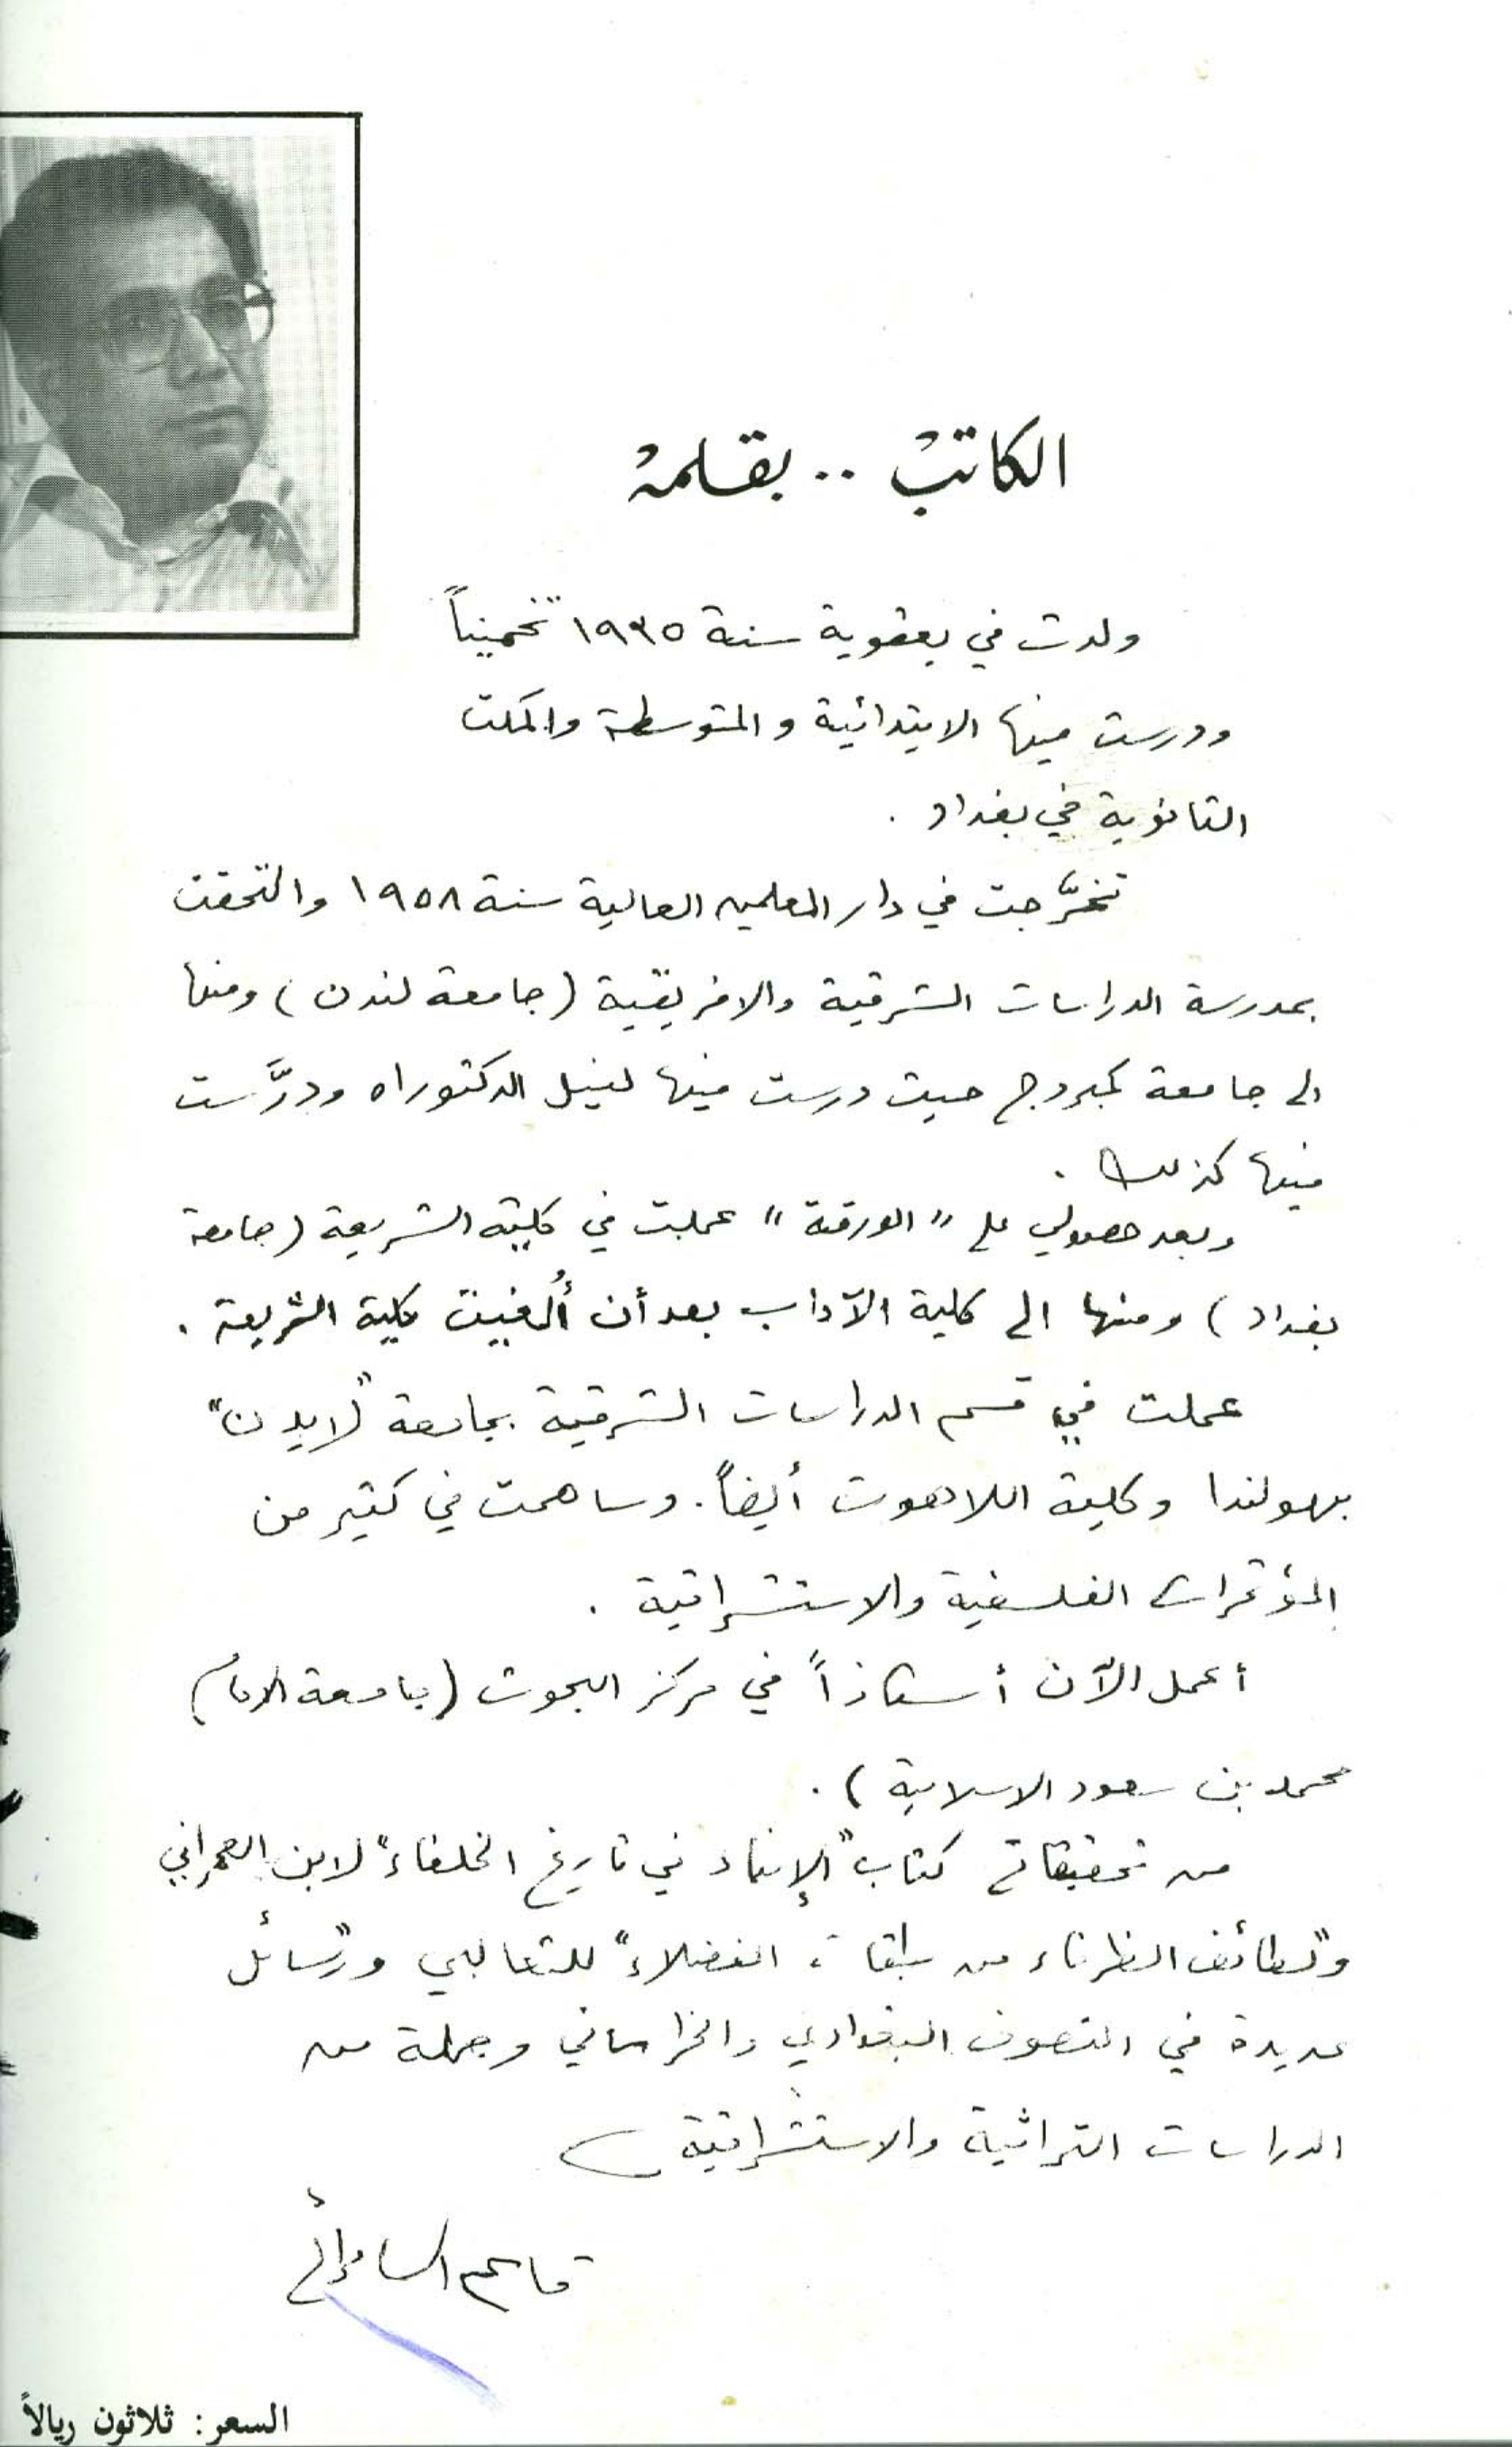 الكاتب .. بقلمه
ولدت في بعقوبة سنة ١٩٣٥ تخميناً
ودرست فيها الابتدائية والمتوسطة واكملت
الثانوية في بغداد .
تخرَّجت في دار المعلمين العالية سنة ١٩٥٨ والتحقت
بمدرسة الدراسات الشرقية والافريقية (جامعة لندن) ومنها
الى جامعة كمبردج حيث درست فيها لنيل الدكتوراه ودرَّست
فيها كذلك .
وبعد حصولي على "الورقة" عملت في كلية الشريعة (جامعة
بغداد) ومنها الى كلية الآداب بعد أن أُلغيت كلية الشريعة .
عملت في قسم الدراسات الشرقية بجامعة "لايدن"
بهولندا وكلية اللاهوت أيضاً. وساهمت في كثير من
المؤتمرات الفلسفية والاستشراقية .
أعمل الآن أستاذاً في مركز البحوث (جامعة الامام
محمد بن سعود الاسلامية) .
من تحقيقاتي كتاب "الإنباء في تاريخ الخلفاء" لابن العمراني
و"لطائف الظرفاء من طبقات الفضلاء" للثعالبي ورسائل
عديدة في التصوف البغدادي والخراساني وجملة من
الدراسات التراثية والاستشراقية
قاسم السامرائي
السعر: ثلاثون ريالاً